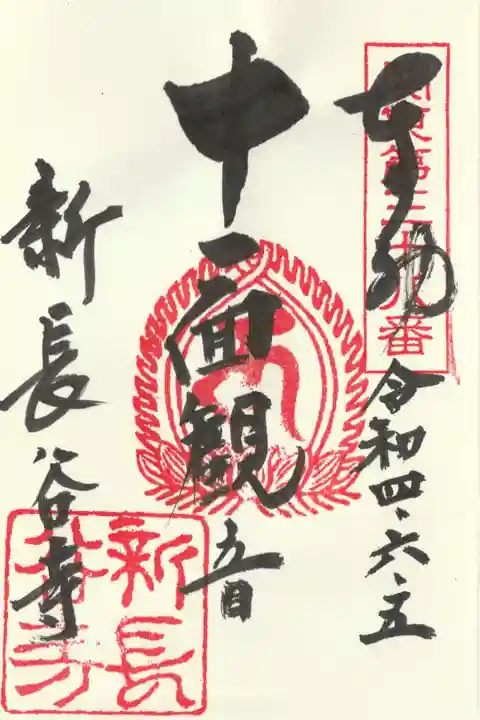 関東第三十九番
奉拝
令和四、六、五
十一面観音
新長谷寺
新長
谷寺